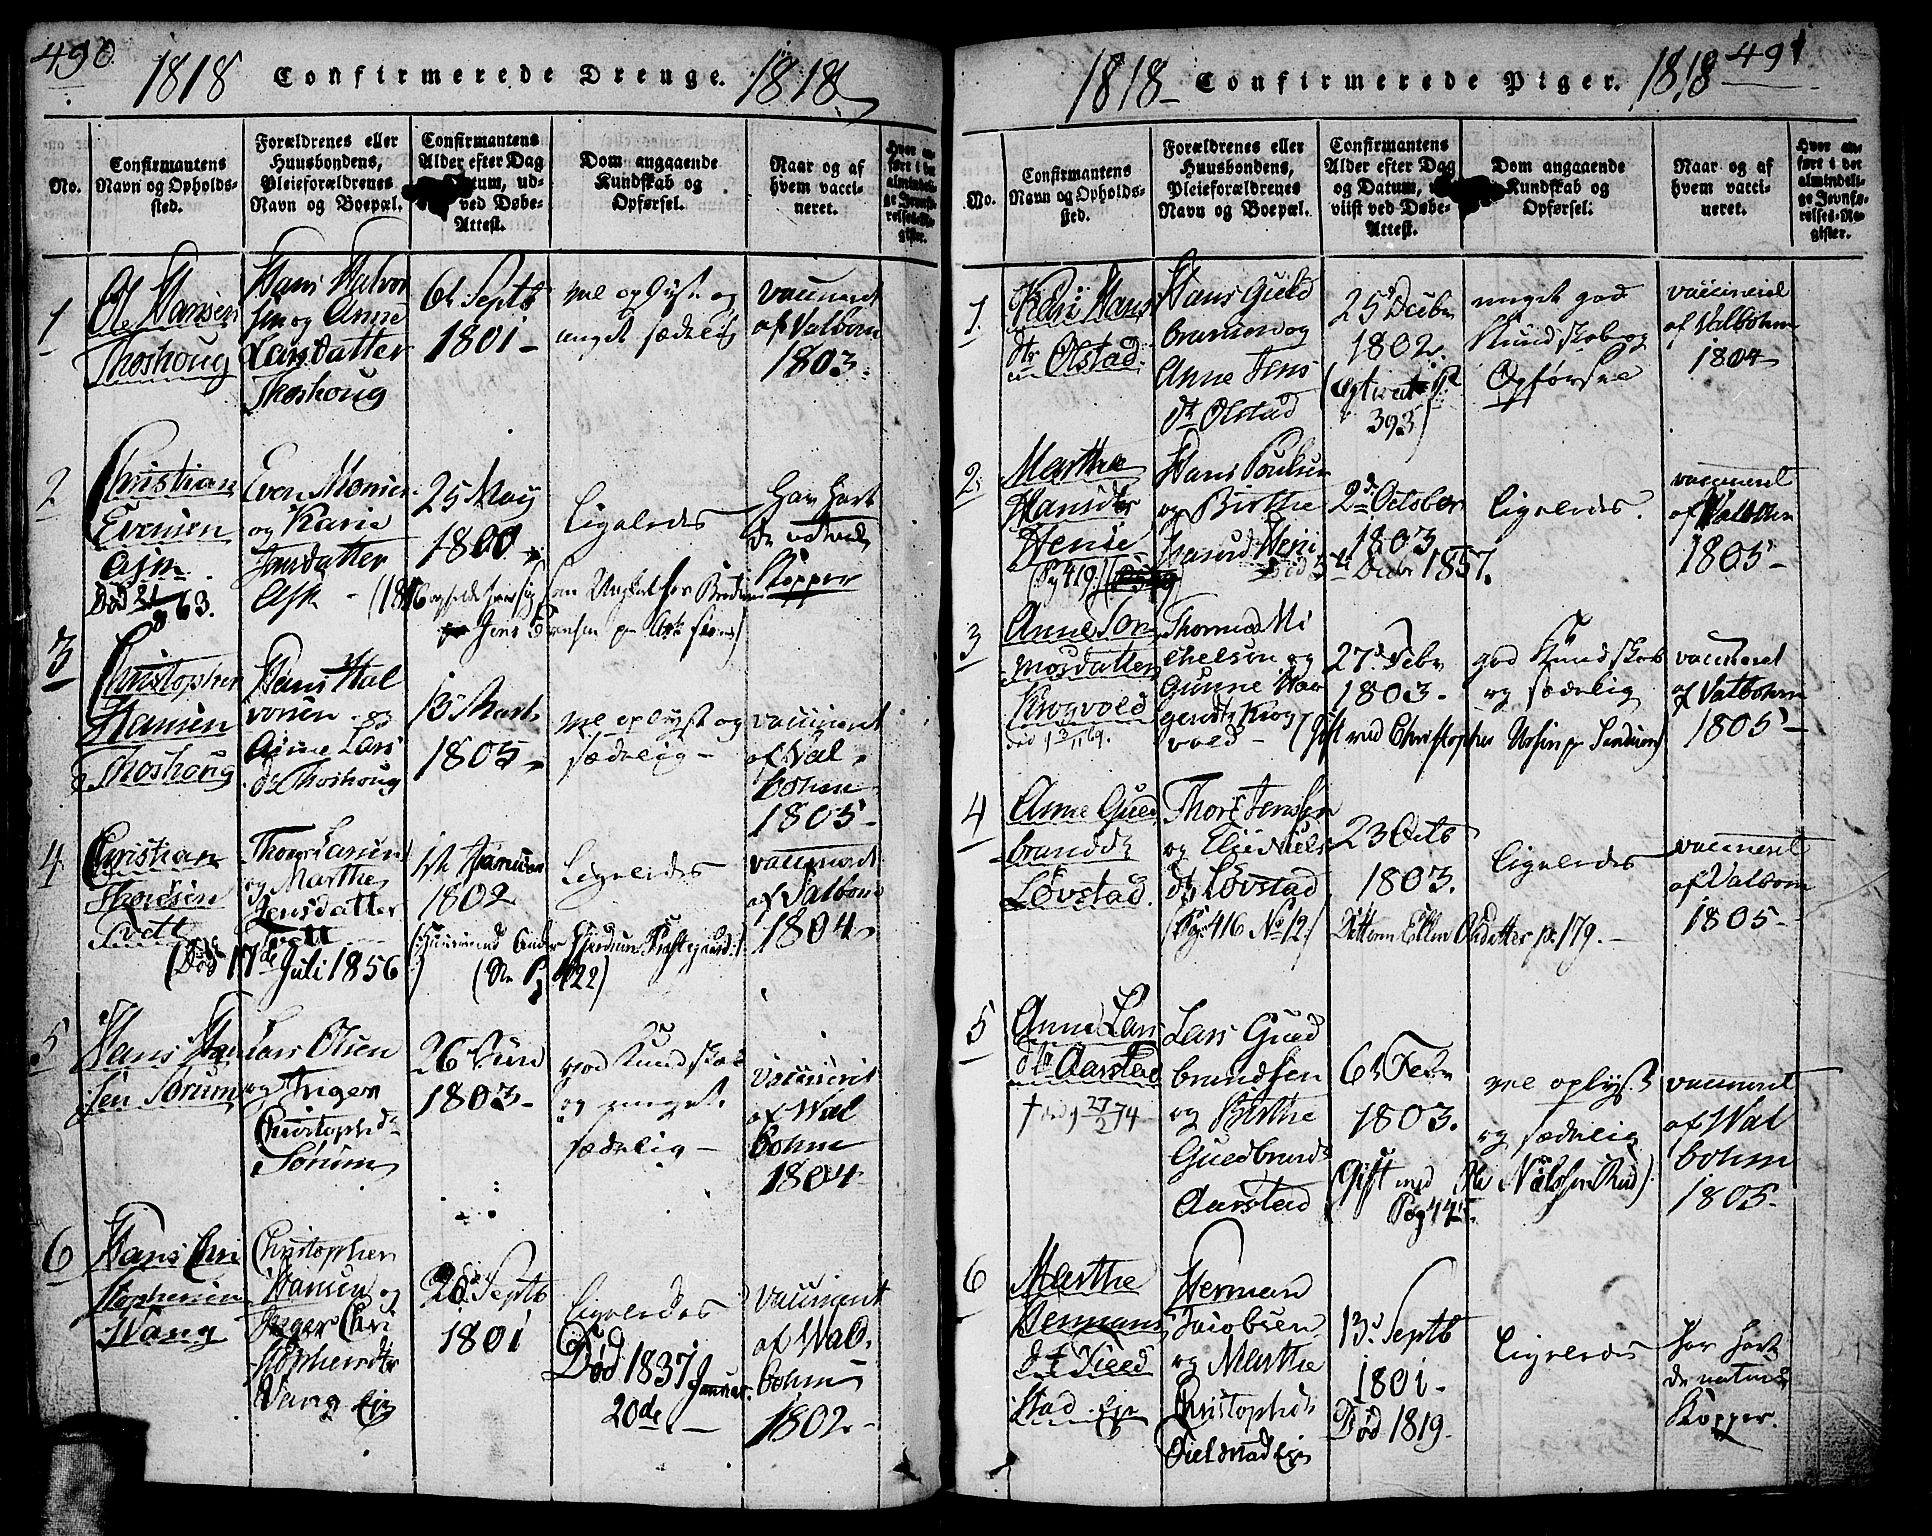 490
1818 Confirmerede Drenge. 1818
No.
Confirmantens
Navn og Opholds-
sted.
Forældrenes eller
Huusbondens,
Pleieforældrenes
Navn og Boepæl.
Confirmantens
Alder efter Dag
Datum, ud-
ved Døbe-
Attest.
Dom angaaende
Kundskab og
Opførsel.
Naar og af
hvem vacci-
neret.
Hvor an-
ført i det
almindeli-
ge Jevnfø-
relses-Re-
gister.
1
Ole Hansen
Thoshoug
Hans Halvor
sen og Anne
Larsdatter
Thoshoug
6t Septb
1801
vel oplyst og
meget sædelig
vaccineret
af Valbom
1803
2
Christian
Evensen
Ask
Død 21/8 63.
Even Monsen
og Karie
Jansdatter
Ask - (1816
25 May
1800
Ligeledes
Har havt
de
Kopper
3
Christopher
Hansen
Thoshoug
Hans Hal
vorsen og
Anne Lars
dr Thoshoug
13 Marts
1805
vel oplyst og
sædelig
vaccineret
af Val
bohm
1805
4
Christian
Thoresen
Tvett
(Død 17de Juli 1856)
Thore Larsen
og Marthe
Jensdatter
Tvett
1st Januar
1802
Ligeledes
vaccineret
af Valbom
1804
422)
5
Hans Lar
sen Sørum
Lars Olsen
og Inger
Christophd
Sørum
26 Juni
1803
god Kundskab
og meget
sædelig
vaccineret
af Wal
bohm
1804
6
Hans Chri
stophersen
Wang
Christopher
Hansen og
Inger Chri
stophersdtr
Wang Eje
28 Septb
1801
Ligeledes
Død 1837 Januar
20de
vaccineret
af Wal
bohm
1802
491
1818 Confirmerede Piger. 1818
No.
Confirmantens
Navn og Opholds-
sted.
Forældrenes eller
Huusbondens,
Pleieforældrenes
Navn og Boepæl.
Confirmantens
Alder efter Dag
og Datum,
viist ved Døbe-
Attest.
Dom angaaende
Kundskab og
Opførsel.
Naar og af
hvem vacci-
neret.
Hvor an-
ført i det
almindeli-
ge Jevnfø-
relses-Re-
gister.
1
Kari Hans
dtr
Olstad
Hans Guld
brandsen og
Anne Jens
dr Olstad
25 Decbr
1802
393)
meget god
Kundskab og
Opførsel
vaccineret
af Valbohm
1804
2
Marthe
Hansdtr
Henie
(Pg 419)
Hans Poulsen
og Birthe
Henie
2de October
1803
Død 5te Decbr 1857.
Ligeledes
vaccineret
af Valbohm
1805
3
Anne Tho
masdatter
Krogvold
død 13/11 69.
Thomas Mi
chelsen og
Gunne Haa
gensdtr Krog
vold
27 Febr
1803
god Kundskab
og sædelig
(Gift med Christopher
vaccineret
af Valbohm
1805
4
Anne Gud
brandsdr
Løvstad
Thore Jensen
og Elie Niels
dr Løvstad
(Pg 416 No 12)
23 Octb
1803
Datteren Ellen Olsdatter pg 179.
Ligeledes
vaccineret
af Valbom
1805
5
Anne Lars
dtr Aarstad
† død 27/2 74
Lars Gud
brandsen
og Birthe
Guldbrands
Aarstad
6t Febr
1803
(Gift med Ole Nielsen Rud)
Pag 445
vel oplyst
og sædelig
vaccineret
af Wal
bohm
1805
6
Marthe
Hermans
dr
stad Eje
Herman
Jacobsen
og Marthe
Christophdr
13 Septb
1801
Død 1819
Ligeledes
Har havt
de naturl
Kopper